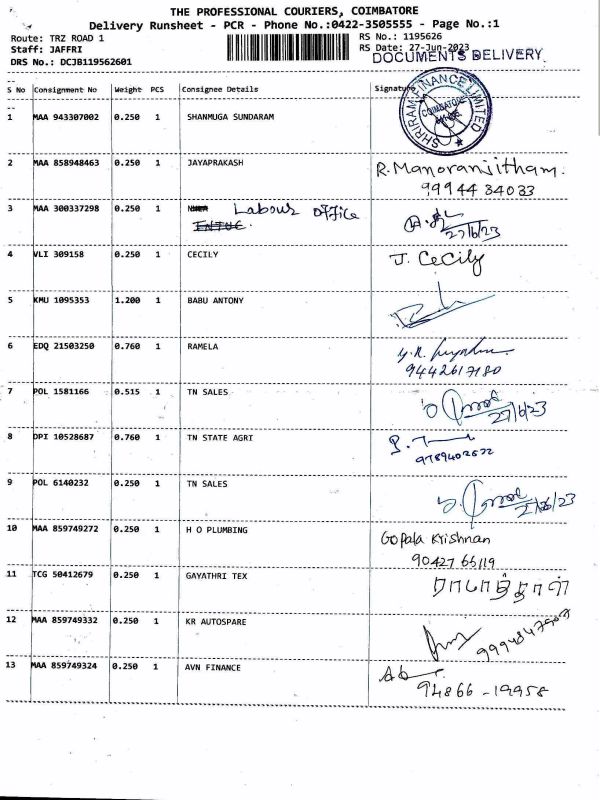 THE PROFESSIONAL COURIERS, COIMBATORE
Delivery Runsheet - PCR - Phone No.:0422-3505555 - Page No.:1
Route: TRZ ROAD 1 RS No.: 1195626
Staff: JAFFRI RS Date: 27-Jun-2023
DRS No.: DCJB119562601 DOCUMENTS DELIVERY
S No Consignment No Weight PCS Consignee Details Signature
SHRIRAM FINANCE LIMITED
COIMBATORE
1 MAA 943307002 0.250 1 SHANMUGA SUNDARAM
2 MAA 858948463 0.250 1 JAYAPRAKASH R. Manoranjitham.
99944 34033
3 MAA 300337298 0.250 1 Labour office
27/6/23
4 VLI 309158 0.250 1 CECILY J. Cecily
5 KMU 1095353 1.200 1 BABU ANTONY
6 EDQ 21503250 0.760 1 RAMELA
9442617180
7 POL 1581166 0.515 1 TN SALES
27/6/23
8 DPI 10528687 0.760 1 TN STATE AGRI
9789402622
9 POL 6140232 0.250 1 TN SALES
10 MAA 859749272 0.250 1 H O PLUMBING Gopala Krishnan
90427 66119
11 TCG 50412679 0.250 1 GAYATHRI TEX
12 MAA 859749332 0.250 1 KR AUTOSPARE
13 MAA 859749324 0.250 1 AVN FINANCE
94866-19958